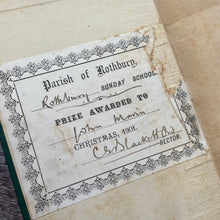 Parish of Rothbury.
Rothbury SUNDAY SCHOOL
PRIZE AWARDED TO
John
CHRISTMAS, 1901.
RECTOR.